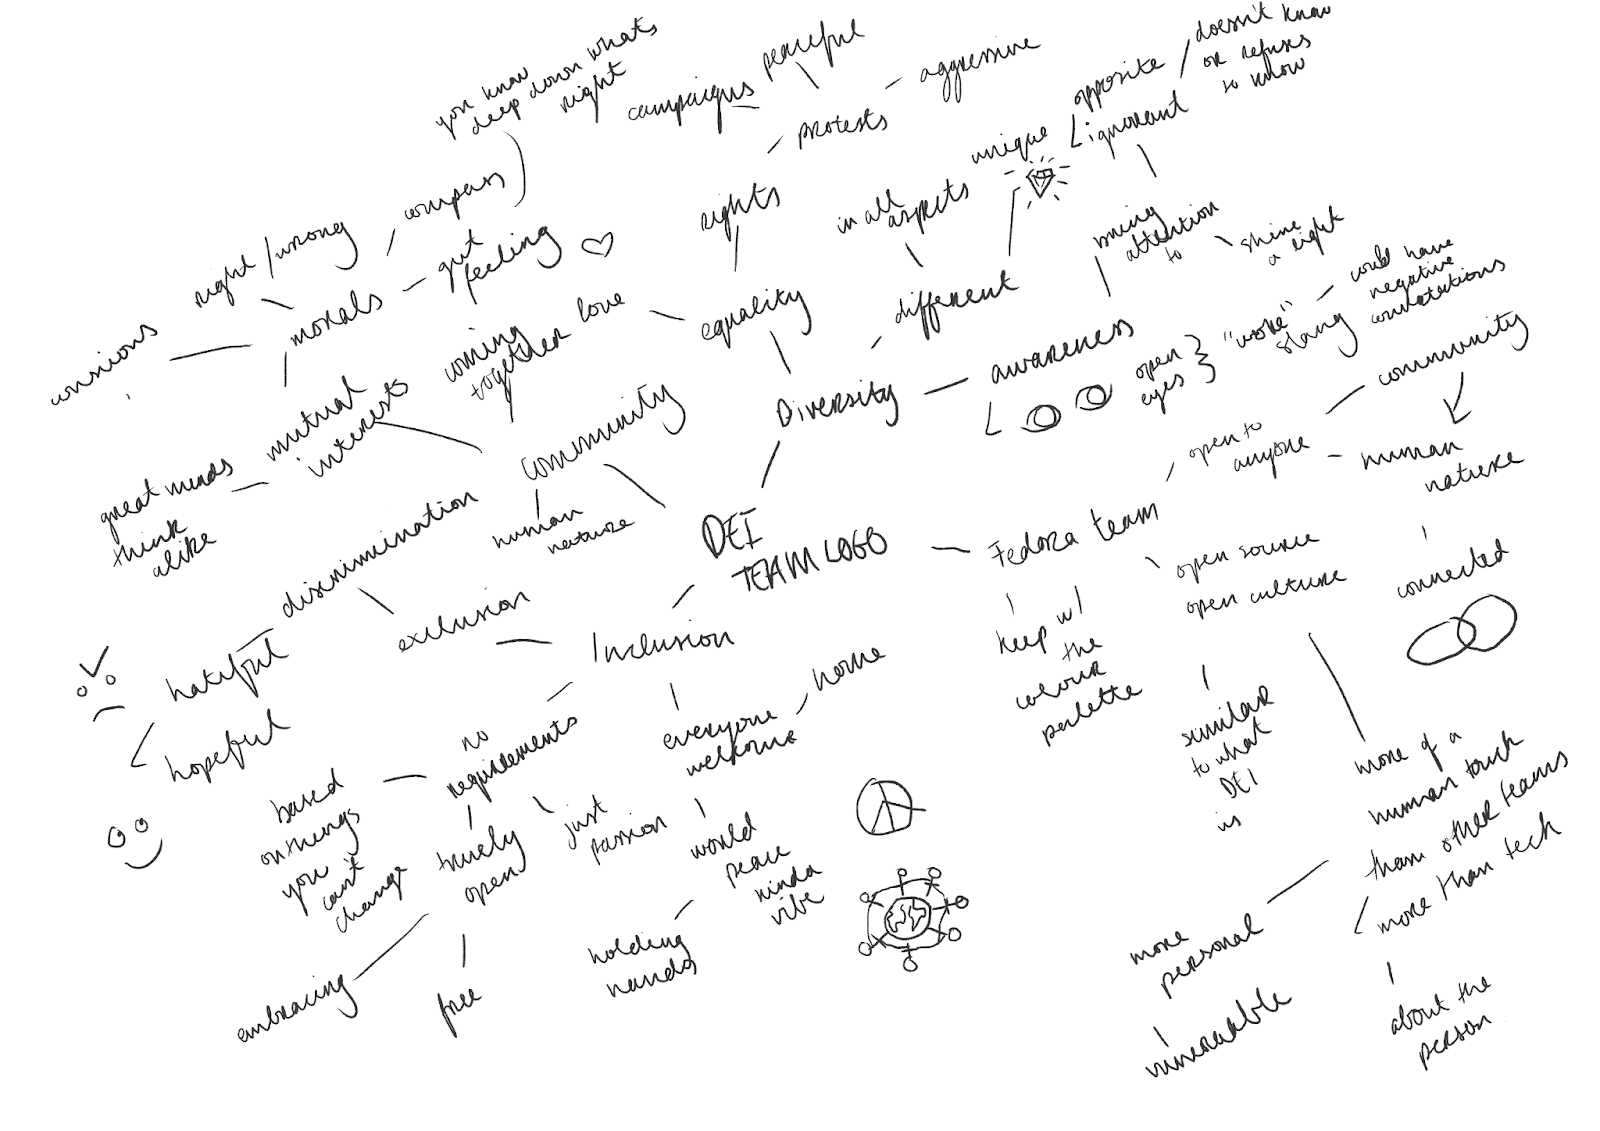 you know
deep down whats
right
campaigns
peaceful
protests
aggressive
unique
opposite
ignorant
doesn't know
or refuses
to know
compass
right/wrong
gut
feeling
morals
rights
in all
aspects
different
bring
attention
to
shine
a light
coming
together
love
equality
awareness
open
eyes
"woke"
slang
could have
negative
connotations
community
mutual
interests
great minds
think
alike
community
Diversity
open to
anyone
human
nature
connected
discrimination
human
nature
DEI
TEAM LOGO
Fedora team
open source
open culture
exclusion
Inclusion
hateful
hopeful
keep w/
the
colour
palette
similar
to what
DEI
is
more of a
human touch
than other teams
more than tech
about the
person
more
personal
no
requirements
everyone
welcome
home
based
on things
you
can't
change
truely
open
just
passion
world
peace
kinda
vibe
holding
hands
embracing
free